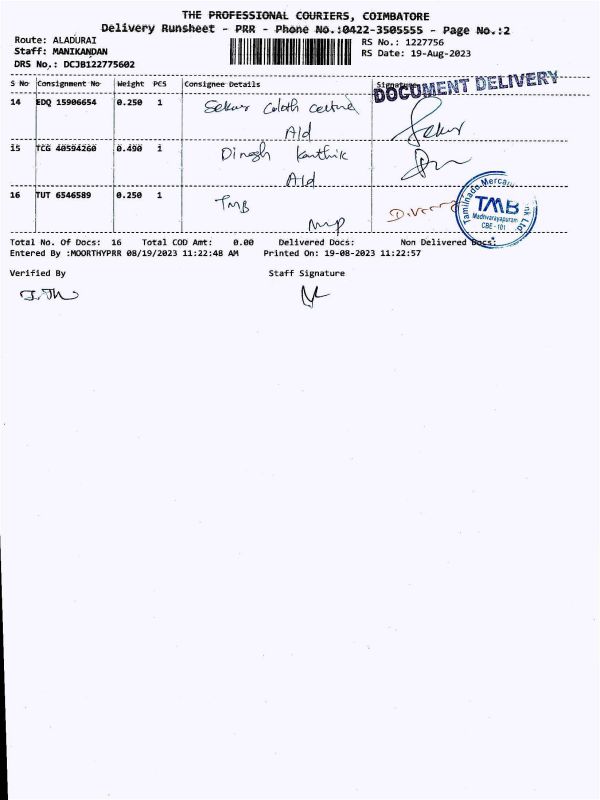 THE PROFESSIONAL COURIERS, COIMBATORE
Delivery Runsheet - PRR - Phone No.:0422-3505555 - Page No.:2
Route: ALADURAI RS No.: 1227756
Staff: MANIKANDAN RS Date: 19-Aug-2023
DRS No.: DCJB122775602
S No Consignment No Weight PCS Consignee Details Signature
DOCUMENT DELIVERY
14 EDQ 15906654 0.250 1 Sekar Cloth Sekar
Ald
15 TCG 40594260 0.490 1 Dinesh Karthik
Ald
16 TUT 6546589 0.250 1 TMB
MP
Tamilnadu Mercantile Bank Ltd
TMB
Madhvarayapuram
CBE - 101
Total No. Of Docs: 16 Total COD Amt: 0.00 Delivered Docs: Non Delivered Docs:
Entered By :MOORTHYPRR 08/19/2023 11:22:48 AM Printed On: 19-08-2023 11:22:57
Verified By Staff Signature